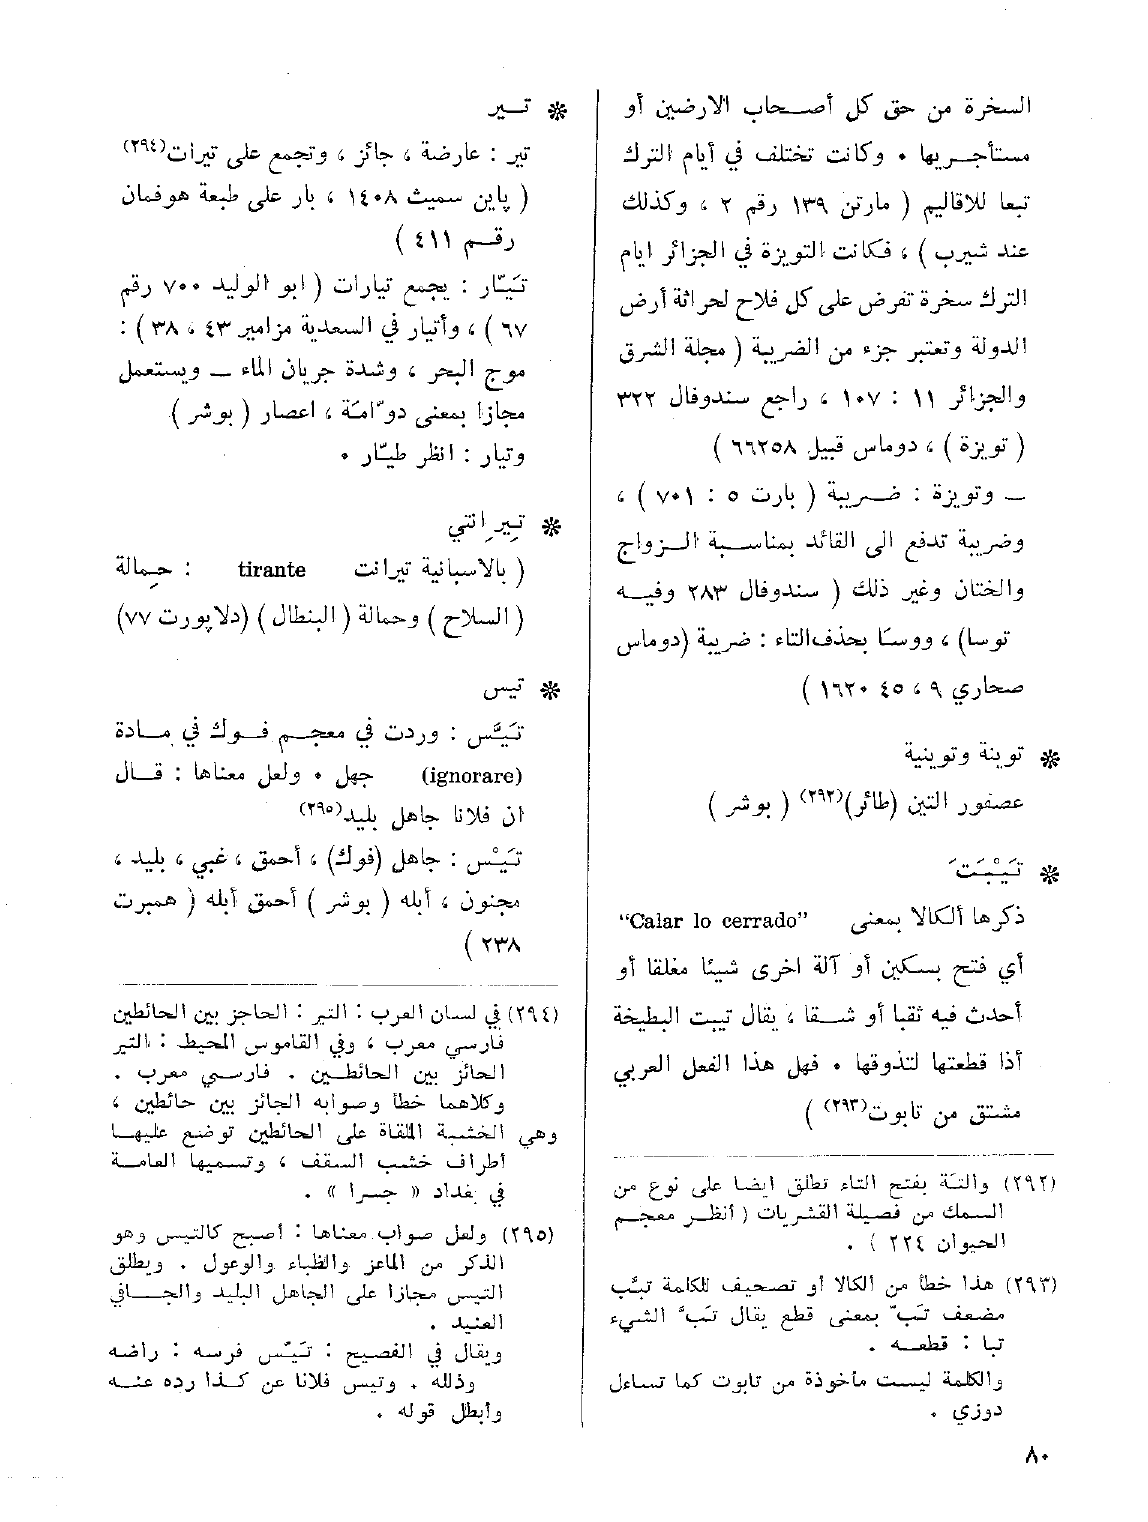 السخرة من حق كل أصحاب الارضين أو
مستأجريها ٠ وكانت تختلف في أيام الترك
تبعا للاقاليم ( مارتن ١٣٩ رقم ٢ ، وكذلك
عند شيرب ) ، فكانت التويزة في الجزائر ايام
الترك سخرة تفرض على كل فلاح لحراثة أرض
الدولة وتعتبر جزء من الضريبة ( مجلة الشرق
والجزائر ١١ : ١٠٧ ، راجع سندوفال ٣٢٢
( تويزة ) ، دوماس قبيل ٦٦٢٥٨ )
ــ وتويزة : ضريبة ( بارت ٥ : ٧٠١ ) ،
وضريبة تدفع الى القائد بمناسبة الزواج
والختان وغير ذلك ( سندوفال ٢٨٣ وفيه
توسا) ، ووسّا بحذف التاء : ضريبة (دوماس
صحاري ٩ ، ٤٥ ١٦٢٠ )
❊ توينة وتوينية
عصفور التين (طائر)(٢٩٢) ( بوشر )
❊ تَيْبَتَ
ذكرها ألكالا بمعنى “Calar lo cerrado”
أي فتح بسكين أو آلة اخرى شيئا مغلقا أو
أحدث فيه ثقبا أو شقا ، يقال تيبت البطيخة
أذا قطعتها لتذوقها ٠ فهل هذا الفعل العربي
مشتق من تابوت(٢٩٣) )
(٢٩٢) والتنّة بفتح التاء تطلق ايضا على نوع من
السمك من فصيلة القشريات ( أنظر معجم
الحيوان ٢٢٤ ) .
(٢٩٣) هذا خطأ من الكالا أو تصحيف للكلمة تبّب
مضعف تبّ بمعنى قطع يقال تبّ الشيء
تبا : قطعه .
والكلمة ليست ماخوذة من تابوت كما تساءل
دوزي .
❊ تير
تير : عارضة ، جائز ، وتجمع على تيرات(٢٩٤)
( پاين سميث ١٤٠٨ ، بار على طبعة هوفمان
رقم ٤١١ )
تَيّار : يجمع تيارات ( ابو الوليد ٧٠٠ رقم
٦٧ ) ، وأتيار في السعدية مزامير ٤٣ ، ٣٨ ) :
موج البحر ، وشدة جريان الماء ــ ويستعمل
مجازا بمعنى دوّامّة ، اعصار ( بوشر )
وتيار : انظر طيّار ٠
❊ تِيرانتي
( بالاسبانية تيرانت tirante : حِمالة
( السلاح ) وحمالة ( البنطال ) (دلاپورت ٧٧)
❊ تيس
تَيَّس : وردت في معجم فوك في مادة
(ignorare) جهل ٠ ولعل معناها : قال
ان فلانا جاهل بليد(٢٩٥)
تَيْس : جاهل (فوك) ، أحمق ، غبي ، بليد ،
مجنون ، أبله ( بوشر ) أحمق أبله ( همبرت
٢٣٨ )
(٢٩٤) في لسان العرب : التير : الحاجز بين الحائطين
فارسي معرب ، وفي القاموس المحيط : التير
الحائز بين الحائطين . فارسي معرب .
وكلاهما خطأ وصوابه الجائز بين حائطين ،
وهي الخشبة الملقاة على الحائطين توضع عليها
أطراف خشب السقف ، وتسميها العامة
في بغداد « جسرا » .
(٢٩٥) ولعل صواب معناها : أصبح كالتيس وهو
الذكر من الماعز والظباء والوعول . ويطلق
التيس مجازا على الجاهل البليد والجافي
العنيد .
ويقال في الفصيح : تَيّس فرسه : راضه
وذلله . وتيس فلانا عن كذا رده عنه
وأبطل قوله .
٨٠